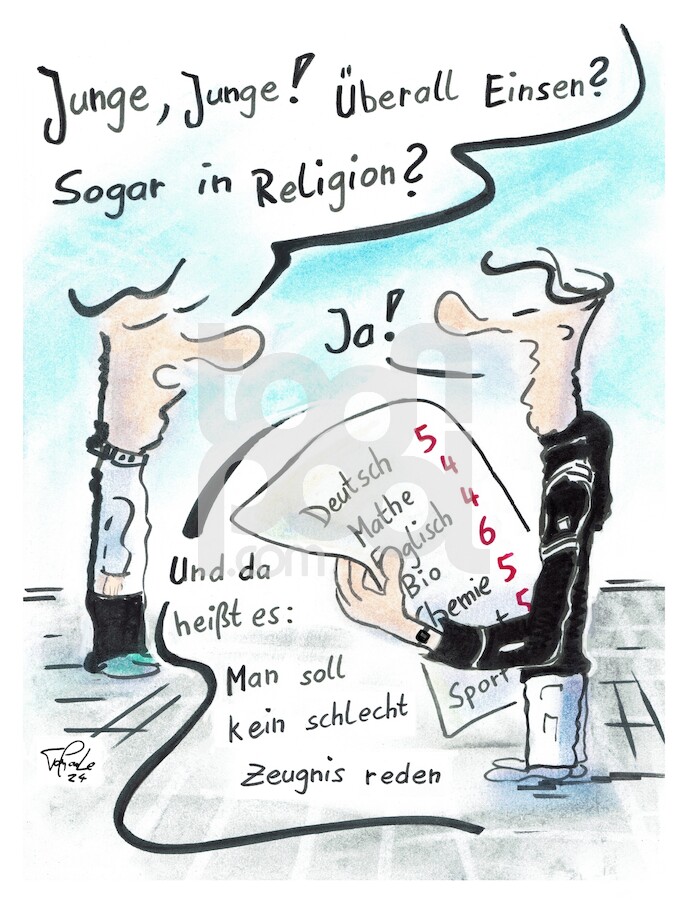 Junge, Junge! Überall Einsen?
Sogar in Religion?
Ja!
Deutsch 5
Mathe 4
Englisch 4
Bio 6
Chemie 5
5
Sport
Und da
heißt es:
Man soll
kein schlecht
Zeugnis reden
24
toonpool
.com